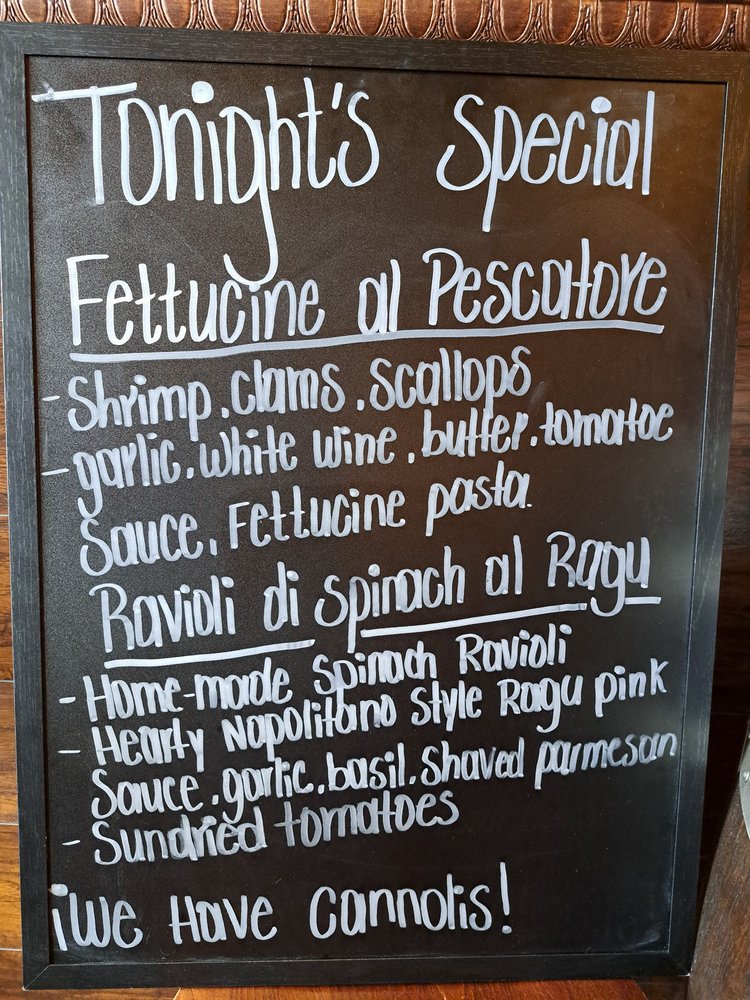 Tonight's Special
Fettucine al Pescatore
- Shrimp, clams, scallops
- garlic, white wine, butter, tomatoe
Sauce, Fettucine pasta.
Ravioli di spinach al Ragu
- Home-made Spinach Ravioli
- Hearty Napolitano Style Ragu pink
Sauce, garlic, basil, Shaved parmesan
- Sundried tomatoes
¡We Have Cannolis!